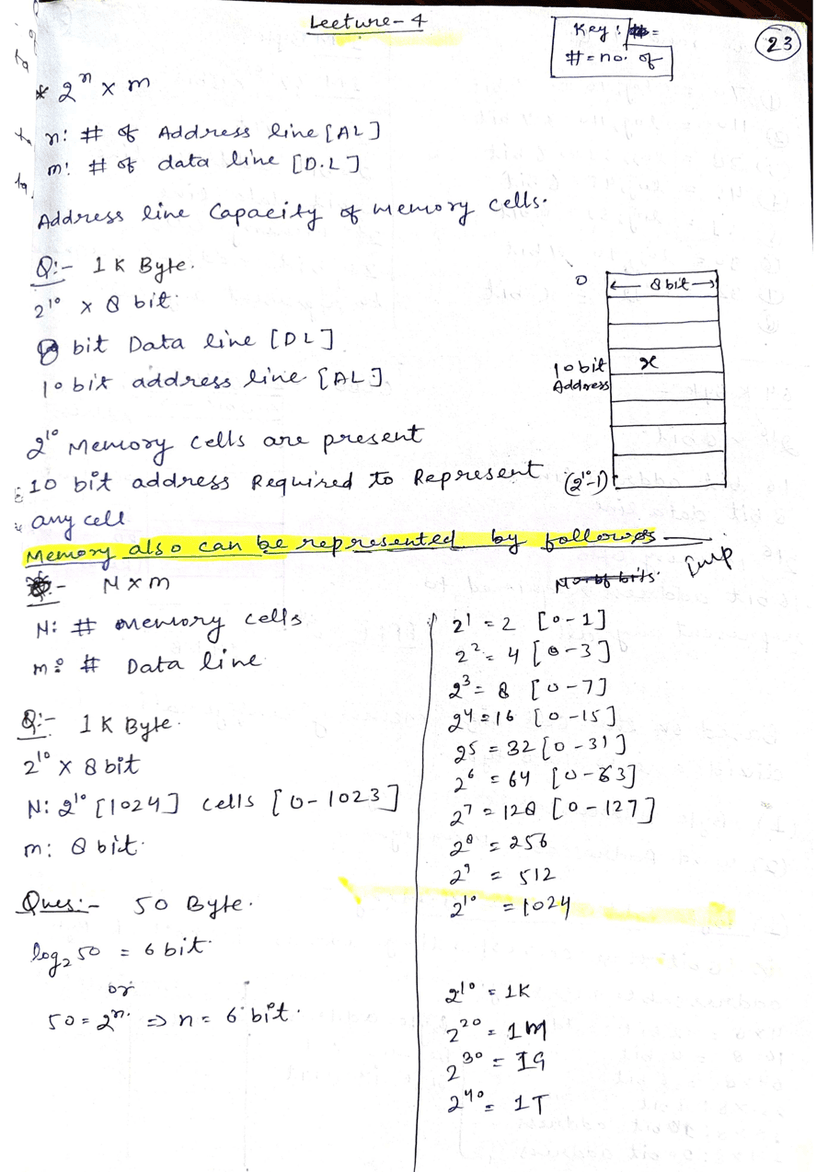 Lecture-4
Key: # =
# = no. of
23
* 2ⁿ x m
n: # of Address line [AL]
m: # of data line [D.L]
Address line Capacity of memory cells.
Q:- 1K Byte.
2¹⁰ x 8 bit.
8 bit Data line [DL]
10 bit address line [AL]
2¹⁰ Memory cells are present
10 bit address Required to Represent
any cell
0
← 8 bit →
10 bit
Address
x
(2¹⁰-1)
Memory also can be represented by follows —
Imp
:- N x m
N: # memory cells
m: # Data line
Q:- 1K Byte.
2¹⁰ x 8 bit
N: 2¹⁰ [1024] cells [0-1023]
m: 8 bit.
Ques:- 50 Byte.
log₂50 = 6 bit.
or
50 = 2ⁿ. ⇒ n = 6 bit.
No. of bits.
2¹ = 2 [0-1]
2² = 4 [0-3]
2³ = 8 [0-7]
2⁴ = 16 [0-15]
2⁵ = 32 [0-31]
2⁶ = 64 [0-63]
2⁷ = 128 [0-127]
2⁸ = 256
2⁹ = 512
2¹⁰ = 1024
2¹⁰ = 1K
2²⁰ = 1M
2³⁰ = 1G
2⁴⁰ = 1T